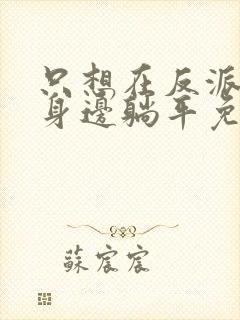 只想在反派
身邊躺平免
蘇宸宸